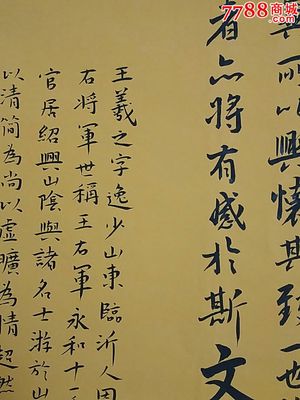 7788商城
.com
異所以興懷其致一也
者亦將有感於斯文
王羲之字逸少山東臨沂人因
右將軍世稱王右軍永和十一
官居紹興山陰與諸名士游於山
以清簡為尚以虛曠為情超然